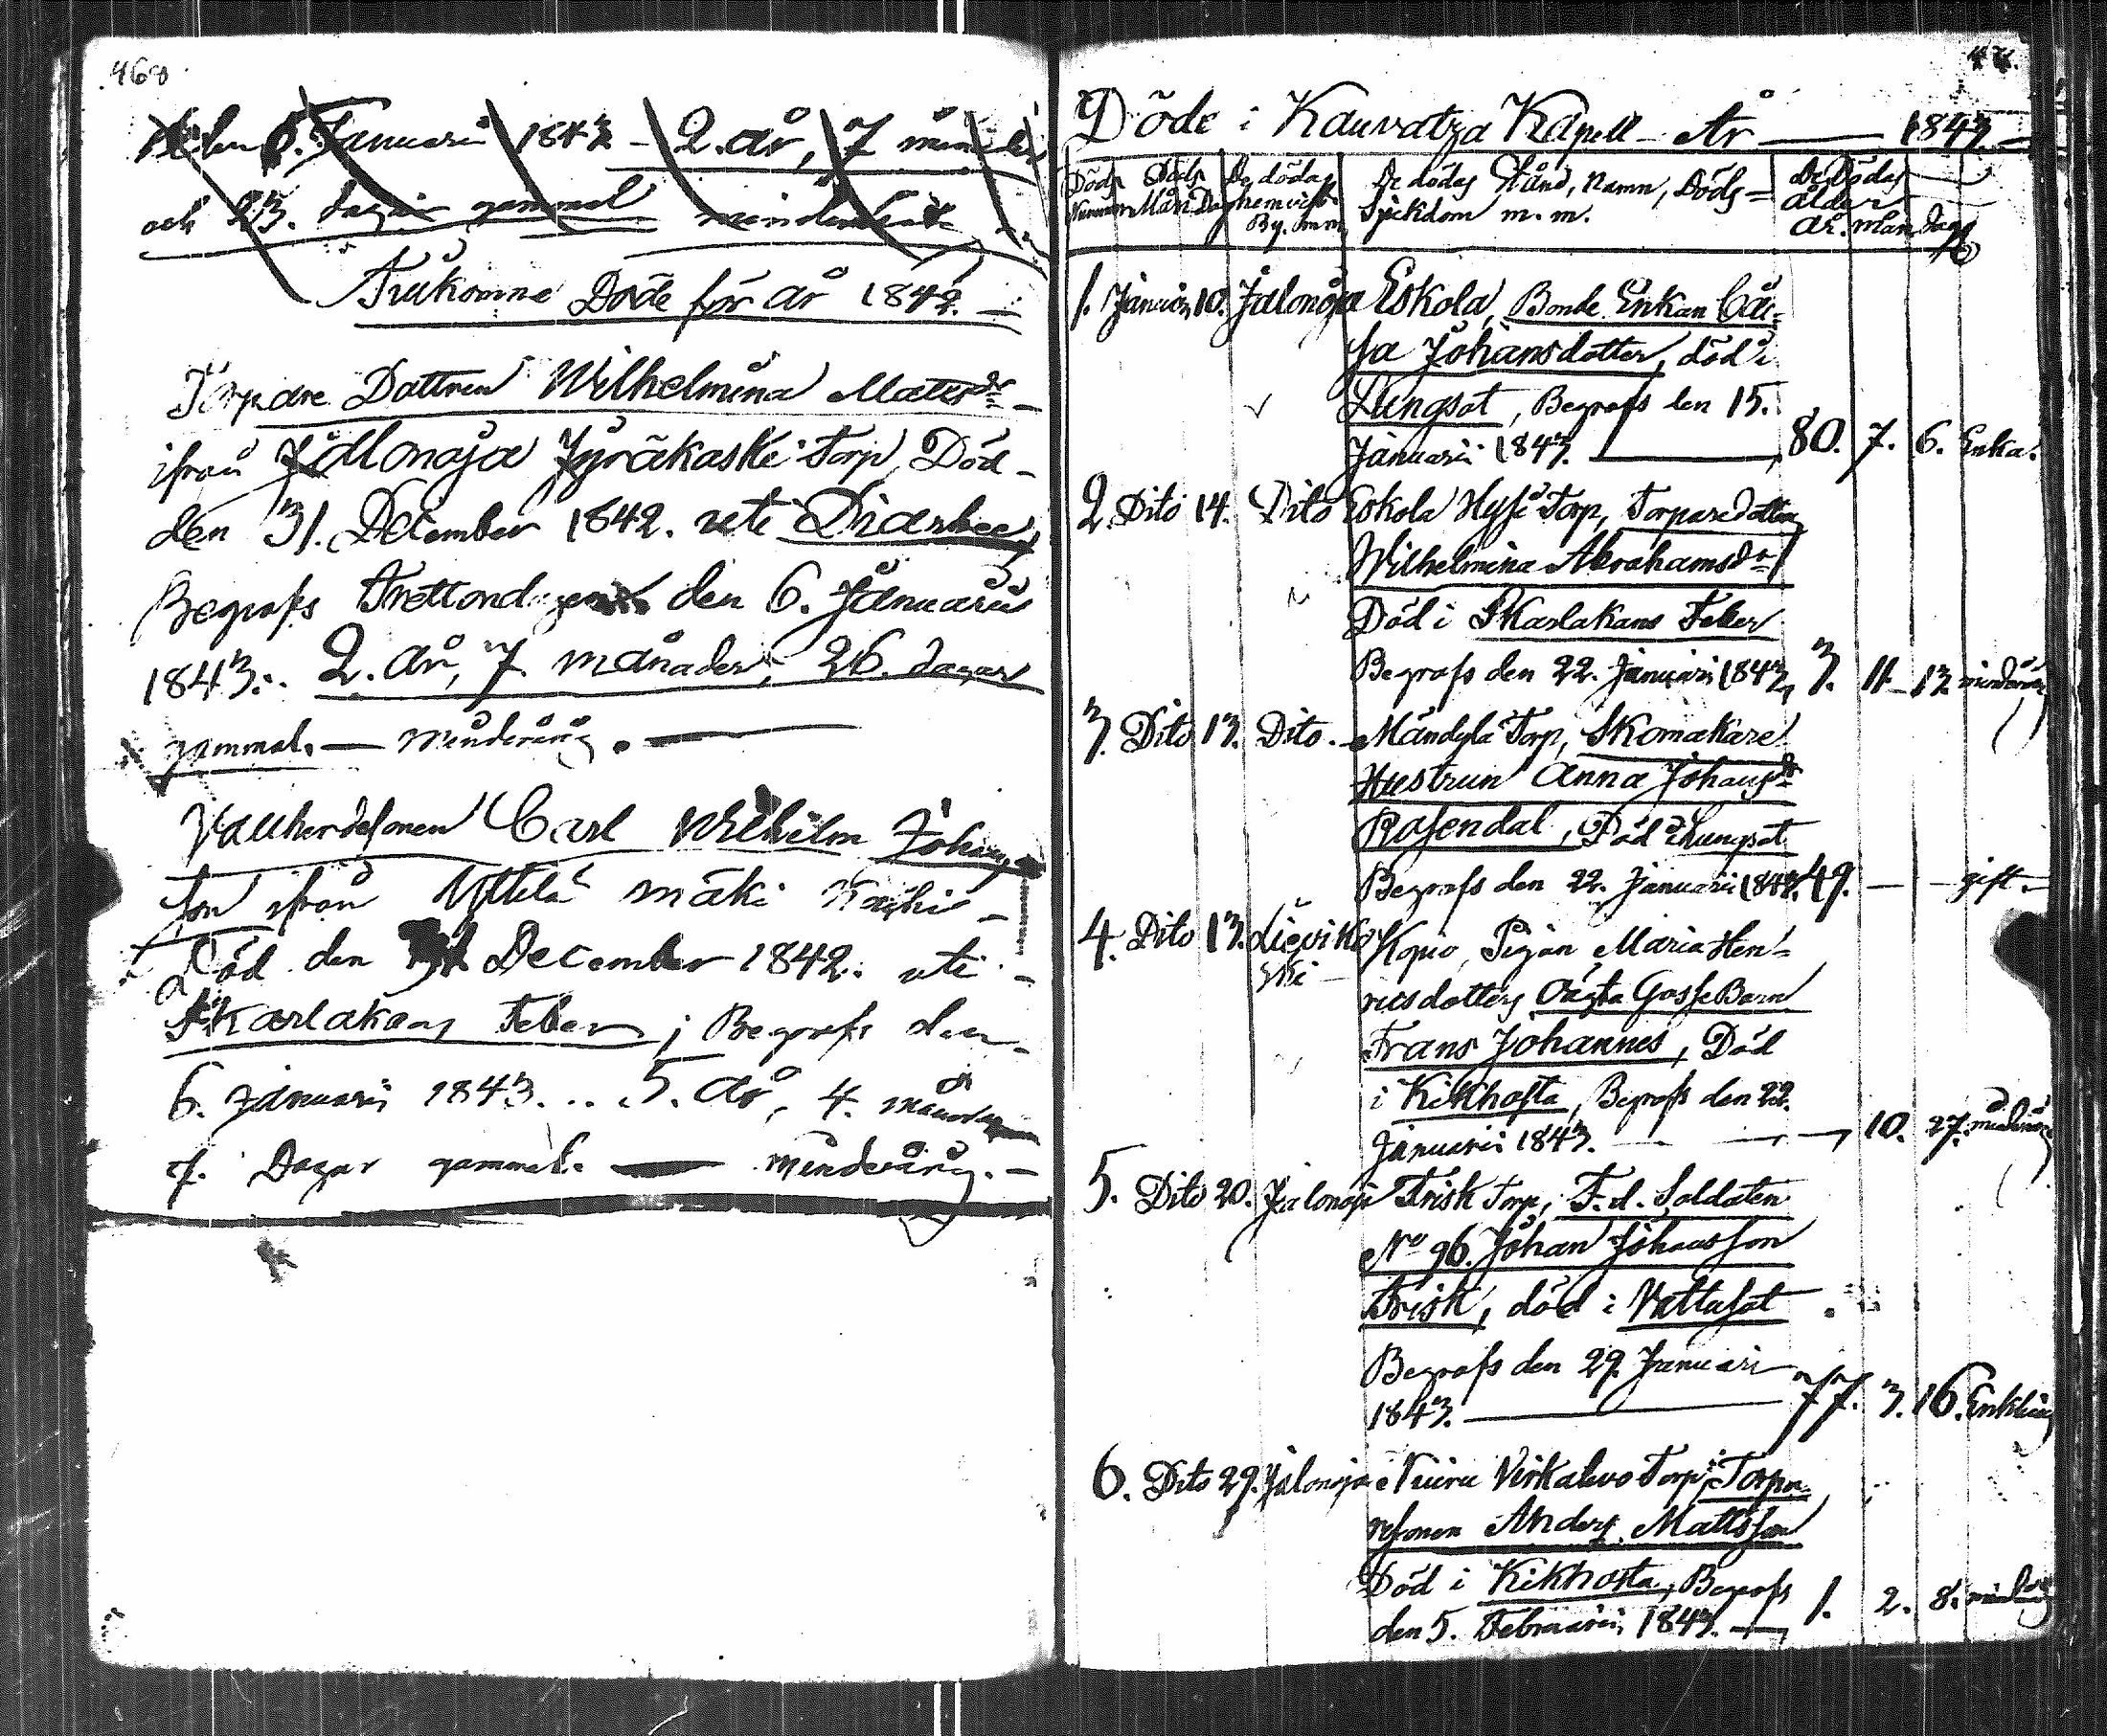 460
den 6. Januarii 1843 – 2. år, 7 månader
och 23. dagar gammal minderårig
Frukomne Döde för år 1842. —
Torpare Dottren Wilhelmina Matts dr –
ifrån Jalonoja Jyräkaski Torp, Död –
den 31. December 1842. uti Diarhee,
Begrofs Trettondagen den 6. Januarii
1843.. 2. år, 7. månader, 26. dagar
gammal. — minderårig. —
Vallherdesonen Carl Wilhelm Johans
son ifrån Yttilä mäki
Död den December 1842. uti –
Skarlakans Feber; Begrofs den
6. Januarii 1843... 5. år, 4. månader
Dagar gammal. — minderårig. —
Döde i Kauvatza Kapell År — 1843. —
Döds Nummer
Döds Mån Dag
De dödas hemvist By. namn
De dödas Stånd, namn, Döds=
Sjukdom m. m.
De Dödas
ålder
År. mån Dagar
1. Januarii 10. Jalonoja Eskola, Bonde Enkan Cai=
sa Johansdotter, död i
Lungsot, Begrofs den 15.
Januarii 1843. — 80. 7. 6. Enka.
2. Dito 14. Dito Eskola Hysi Torp, Torparedottren
Wilhelmina Abrahamsdr
Död i Skarlakans Feber
Begrofs den 22. Januarii 1843, 3. 11 – 13 minderårig
3. Dito 13. Dito. – Mändylä Torp, Skomakare
Hustrun Anna Johansdr
Rosendal, Död i Lungsot
Begrofs den 22. Januarii 1843. 49. — – gift. –
4. Dito 13. Lievikoski – Kopio, Pigan Maria Hen=
ricsdotters Oägta Gosse Barn
Frans Johannes, Död
i Kikhosta, Begrofs den 22.
Januarii 1843. — — 10. 27. minderårig
5. Dito 20. Jalonoja Frisk Torp, F. d. Soldaten
No 96. Johan Johansson
Frisk, död i Vattusot
Begrofs den 29. Januarii
1843. — 77. 3. 16. Enkling
6. Dito 29. Jalonoja Niuru Virkalevo Torp, Torpa=
resonen Anders Mattsson
Död i Kikhosta, Begrofs
den 5. Februarii 1843. — 1. 2. 8. minderårig